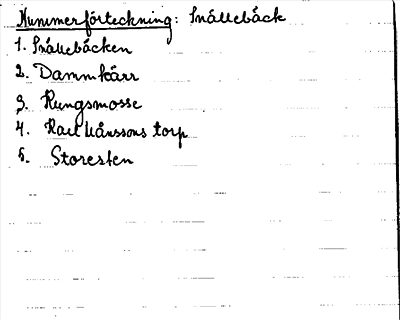 Nummerförteckning: Snållebäck
1. Snållebäcken
2. Dammkärr
3. Kungsmosse
4. Karl Månssons torp
5. Storesten